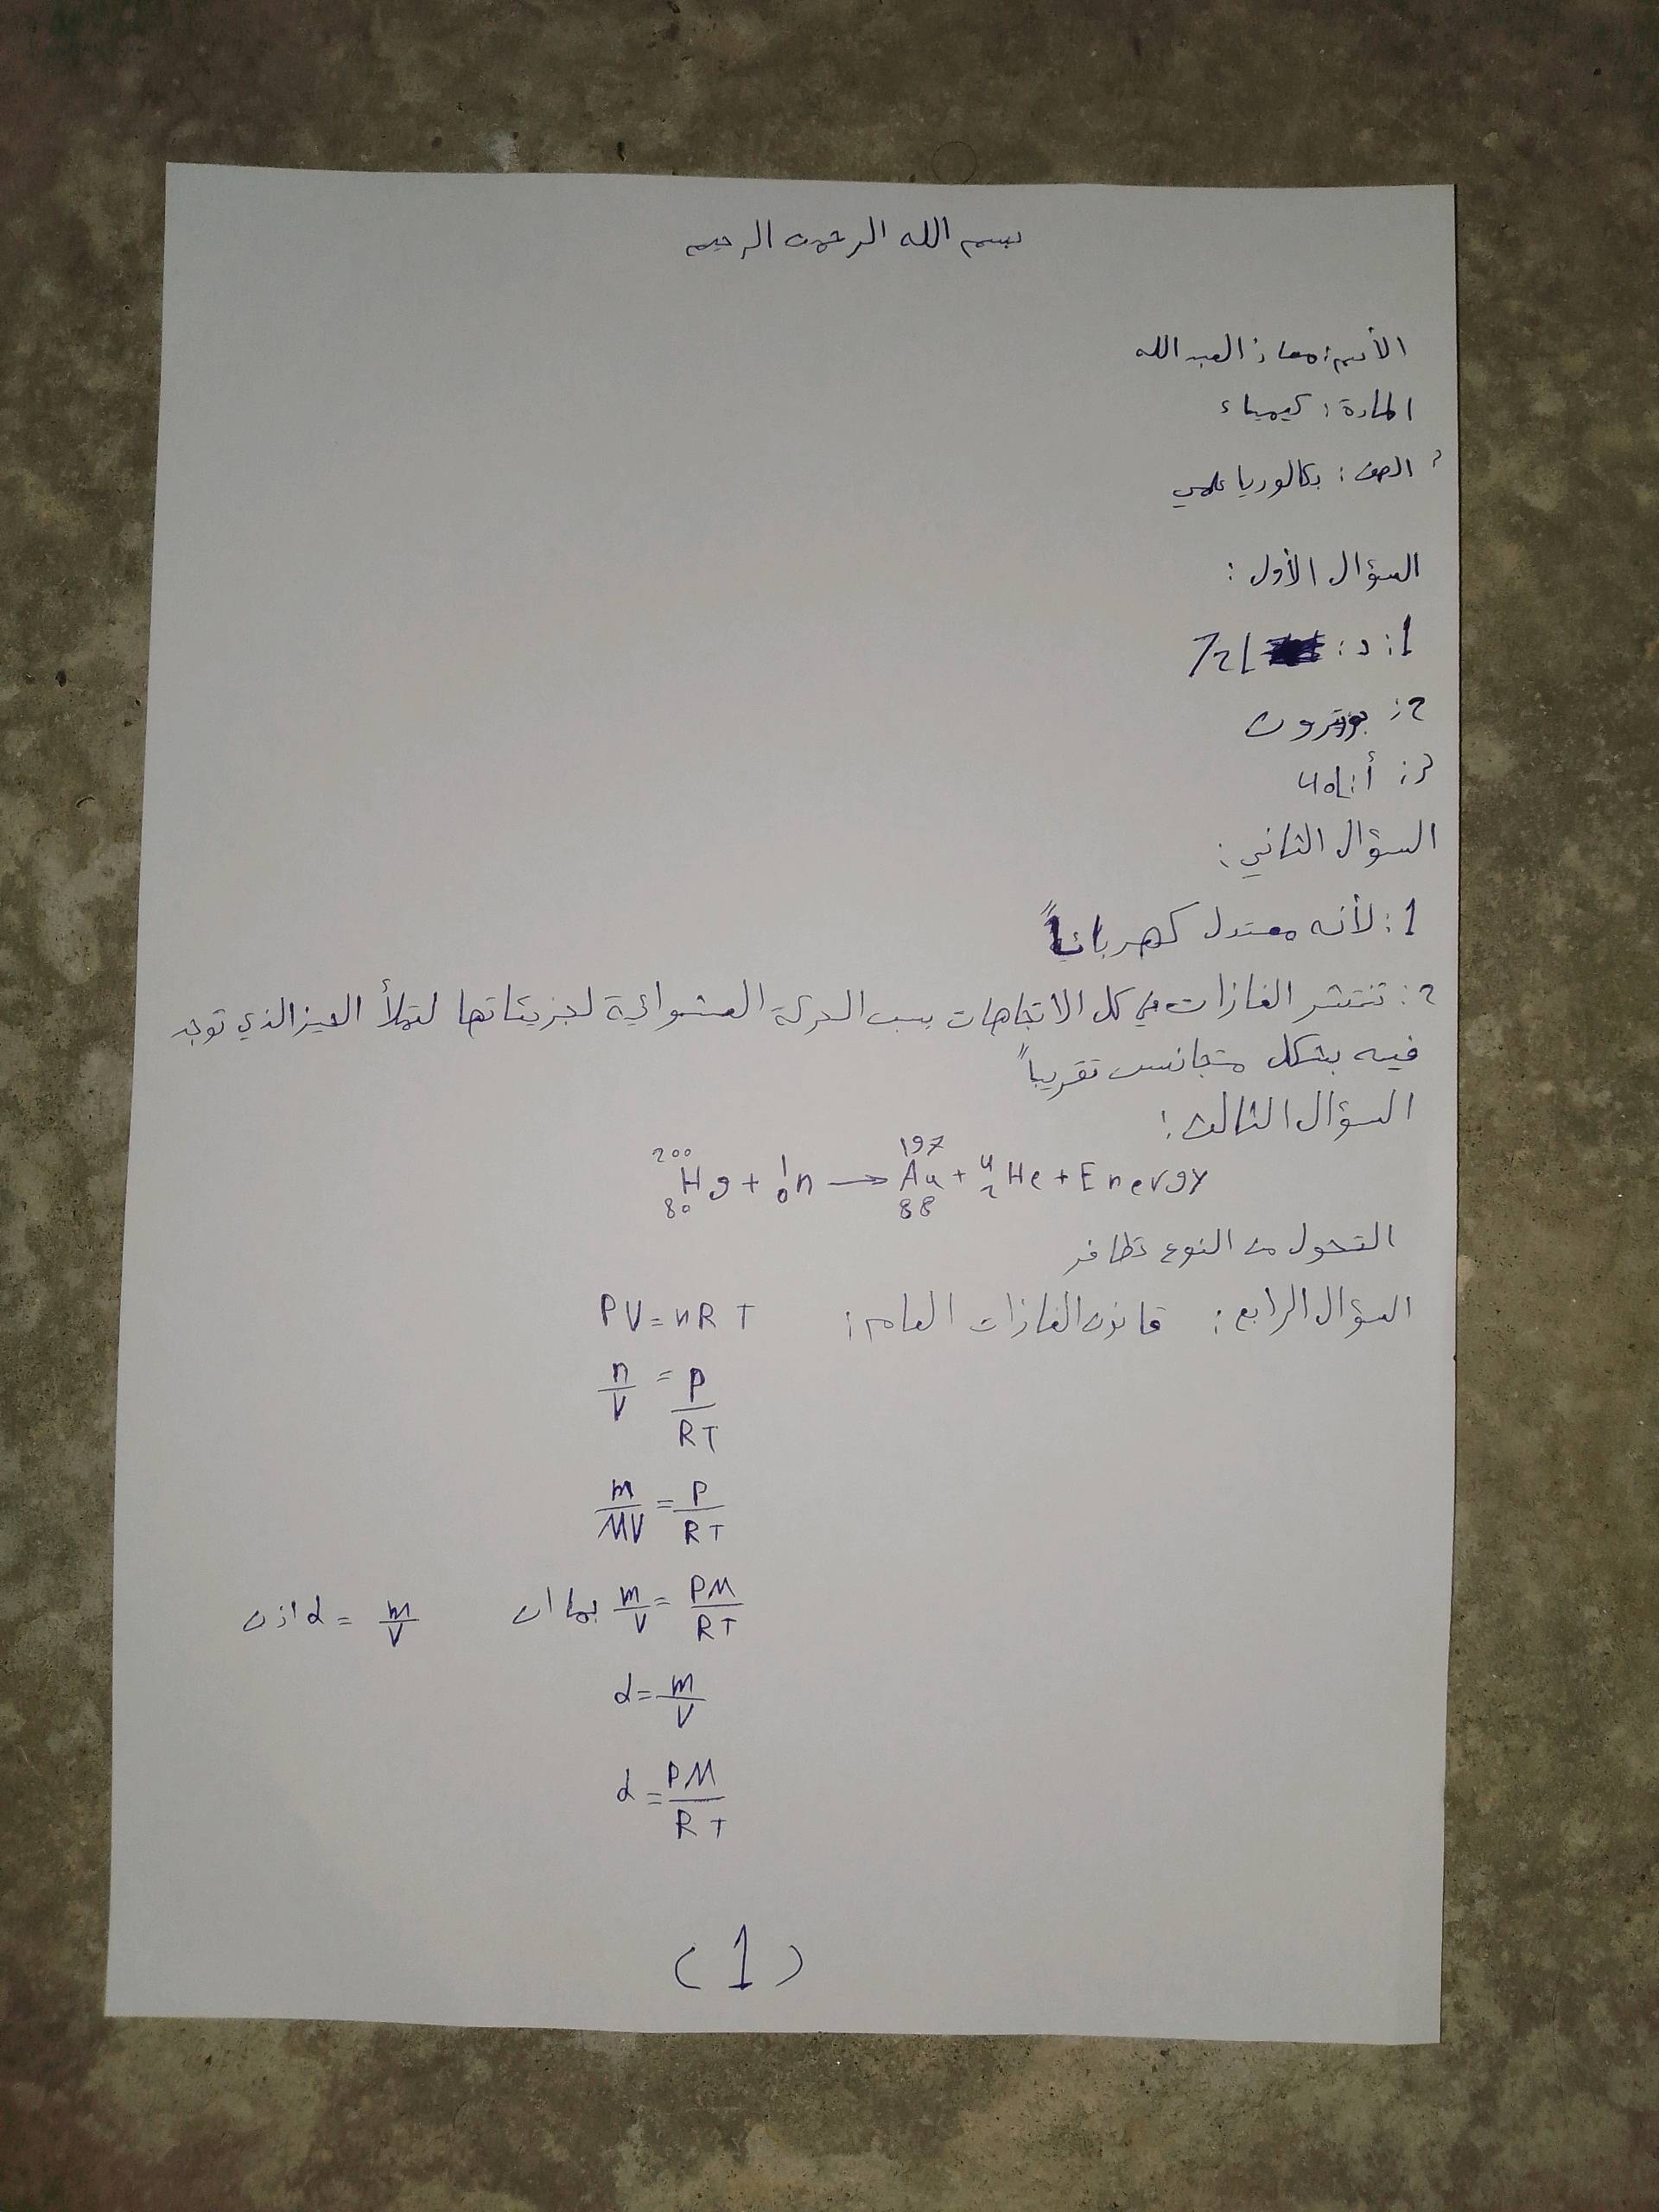 بسم الله الرحمن الرحيم
الأسم: معاذ العبد الله
المادة: كيمياء
الصف: بكالوريا علمي
السؤال الأول:
1: د: 1/27
2: بوزترون
3: أ: 104
السؤال الثاني:
1: لأنه معتدل كهربائياً
2: تنتشر الغازات في كل الاتجاهات بسبب الحركة العشوائية لجزيئاتها لتملأ الحيز الذي توجد
فيه بشكل متجانس تقريباً
السؤال الثالث:
²⁰⁰₈₀Hg + ¹₀n → ¹⁹⁷₈₈Au + ⁴₂He + Energy
التحول من النوع تطافر
السؤال الرابع: قانون الغازات العام: PV = nRT
n/V = P/RT
m/MV = P/RT
m/V = PM/RT بما ان d = m/V اذن
d = m/V
d = PM/RT
(1)